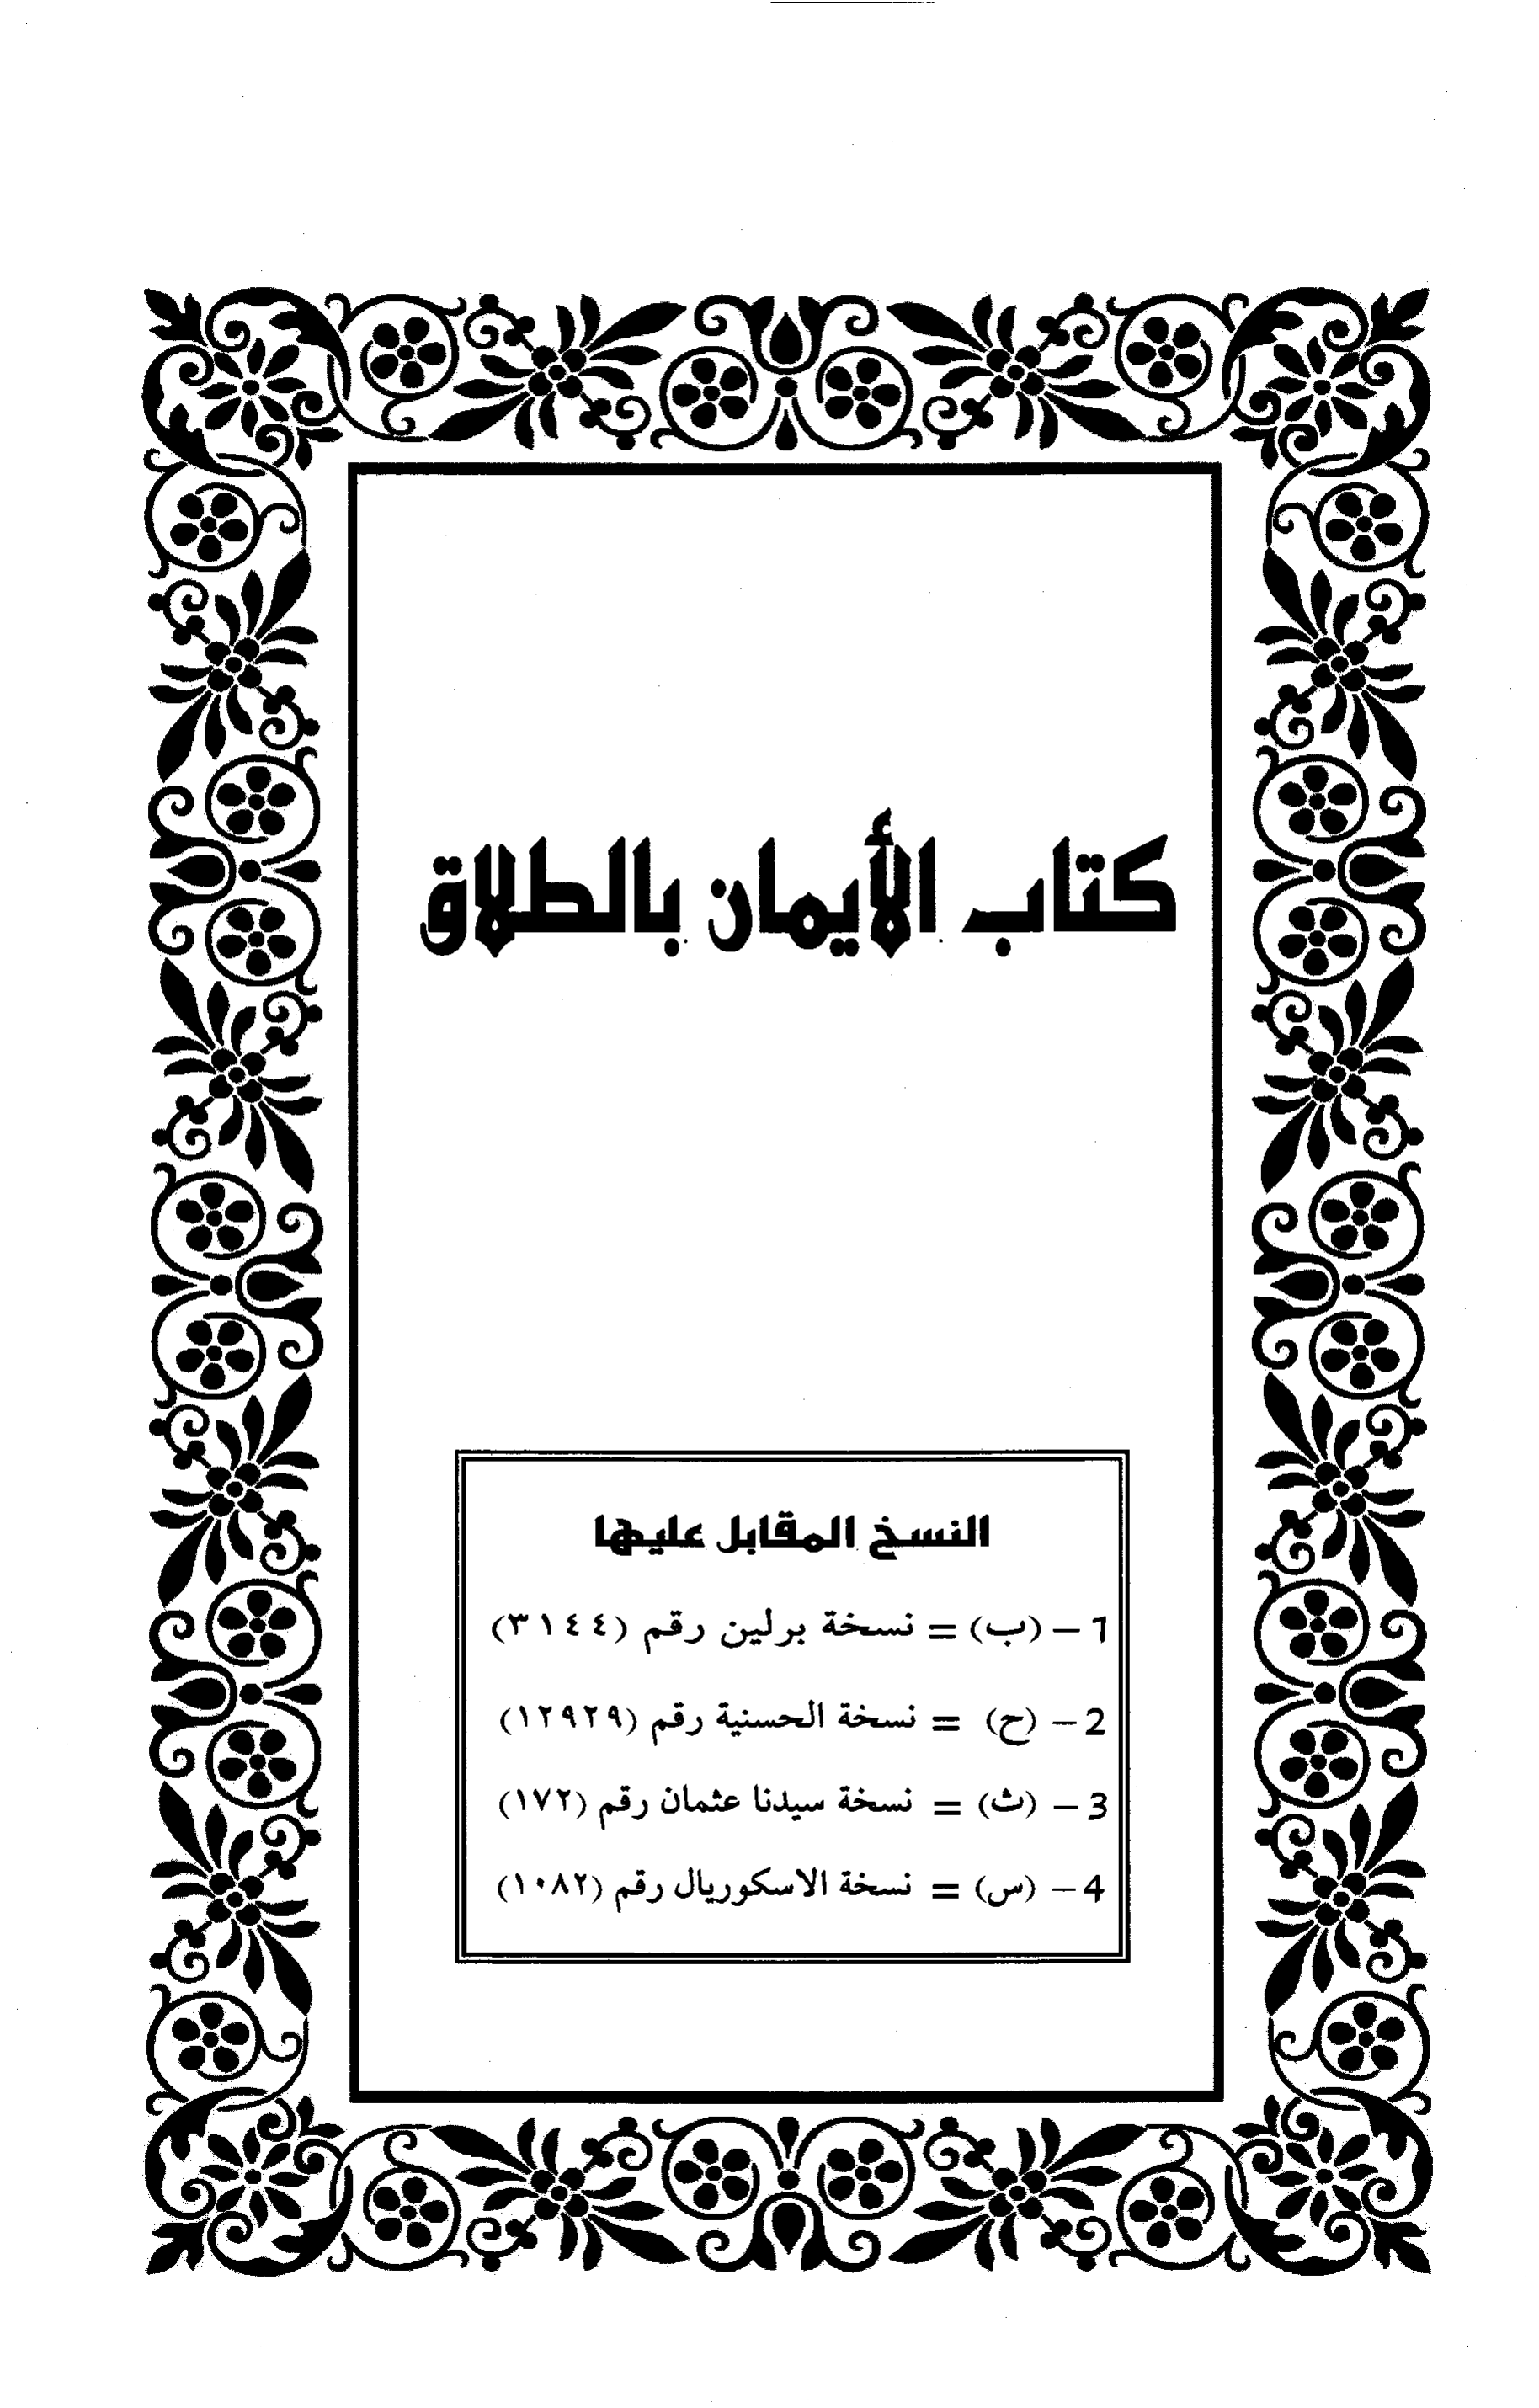 كتاب الأيمان بالطلاق
النسخ المقابل عليها
1 – (ب) = نسخة برلين رقم (٣١٤٤)
2 – (ح) = نسخة الحسنية رقم (١٢٩٢٩)
3 – (ث) = نسخة سيدنا عثمان رقم (١٧٢)
4 – (س) = نسخة الاسكوريال رقم (١٠٨٢)